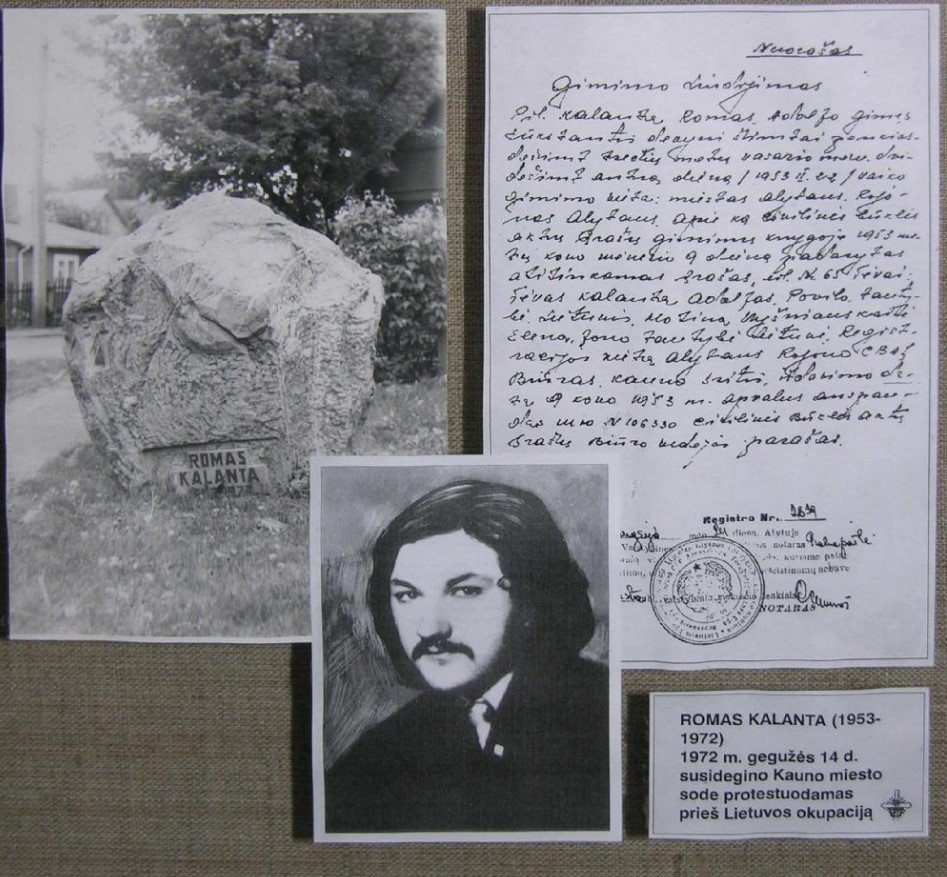 ROMAS
KALANTA
Nuorašas
Gimimo liudijimas
Pil. Kalanta Romas, Adolfo gimęs
tūkstantis devyni šimtai penkias-
dešimt trečių metų vasario mėn. dvi-
dešimt antrą dieną / 1953 II. 22 / vaiko
gimimo vieta: miestas Alytus. Rajo-
nas Alytaus, apie ką civilinės būklės
aktų įrašų gimimų knygoje 1953 me-
tų kovo mėnesio 9 dieną padarytas
atitinkamas įrašas, Nr. 65. Tėvai:
Tėvas Kalanta Adolfas, Povilo, tauty-
bė lietuvis, Motina
Elena, Jono tautybė lietuvė, Regist-
racijos vieta Alytaus Rajono CBAĮ
Biuras, Kauno sritis, Išdavimo da-
ta 9 kovo 1953 m. apvalus antspau-
das N 106330 civilinės būklės aktų
įrašų Biuro vedėjas parašas.
Registro Nr.
mėn. dieną, Alytuje
notaras
nebuvo
NOTARAS
ROMAS KALANTA (1953-
1972)
1972 m. gegužės 14 d.
susidegino Kauno miesto
sode protestuodamas
prieš Lietuvos okupaciją